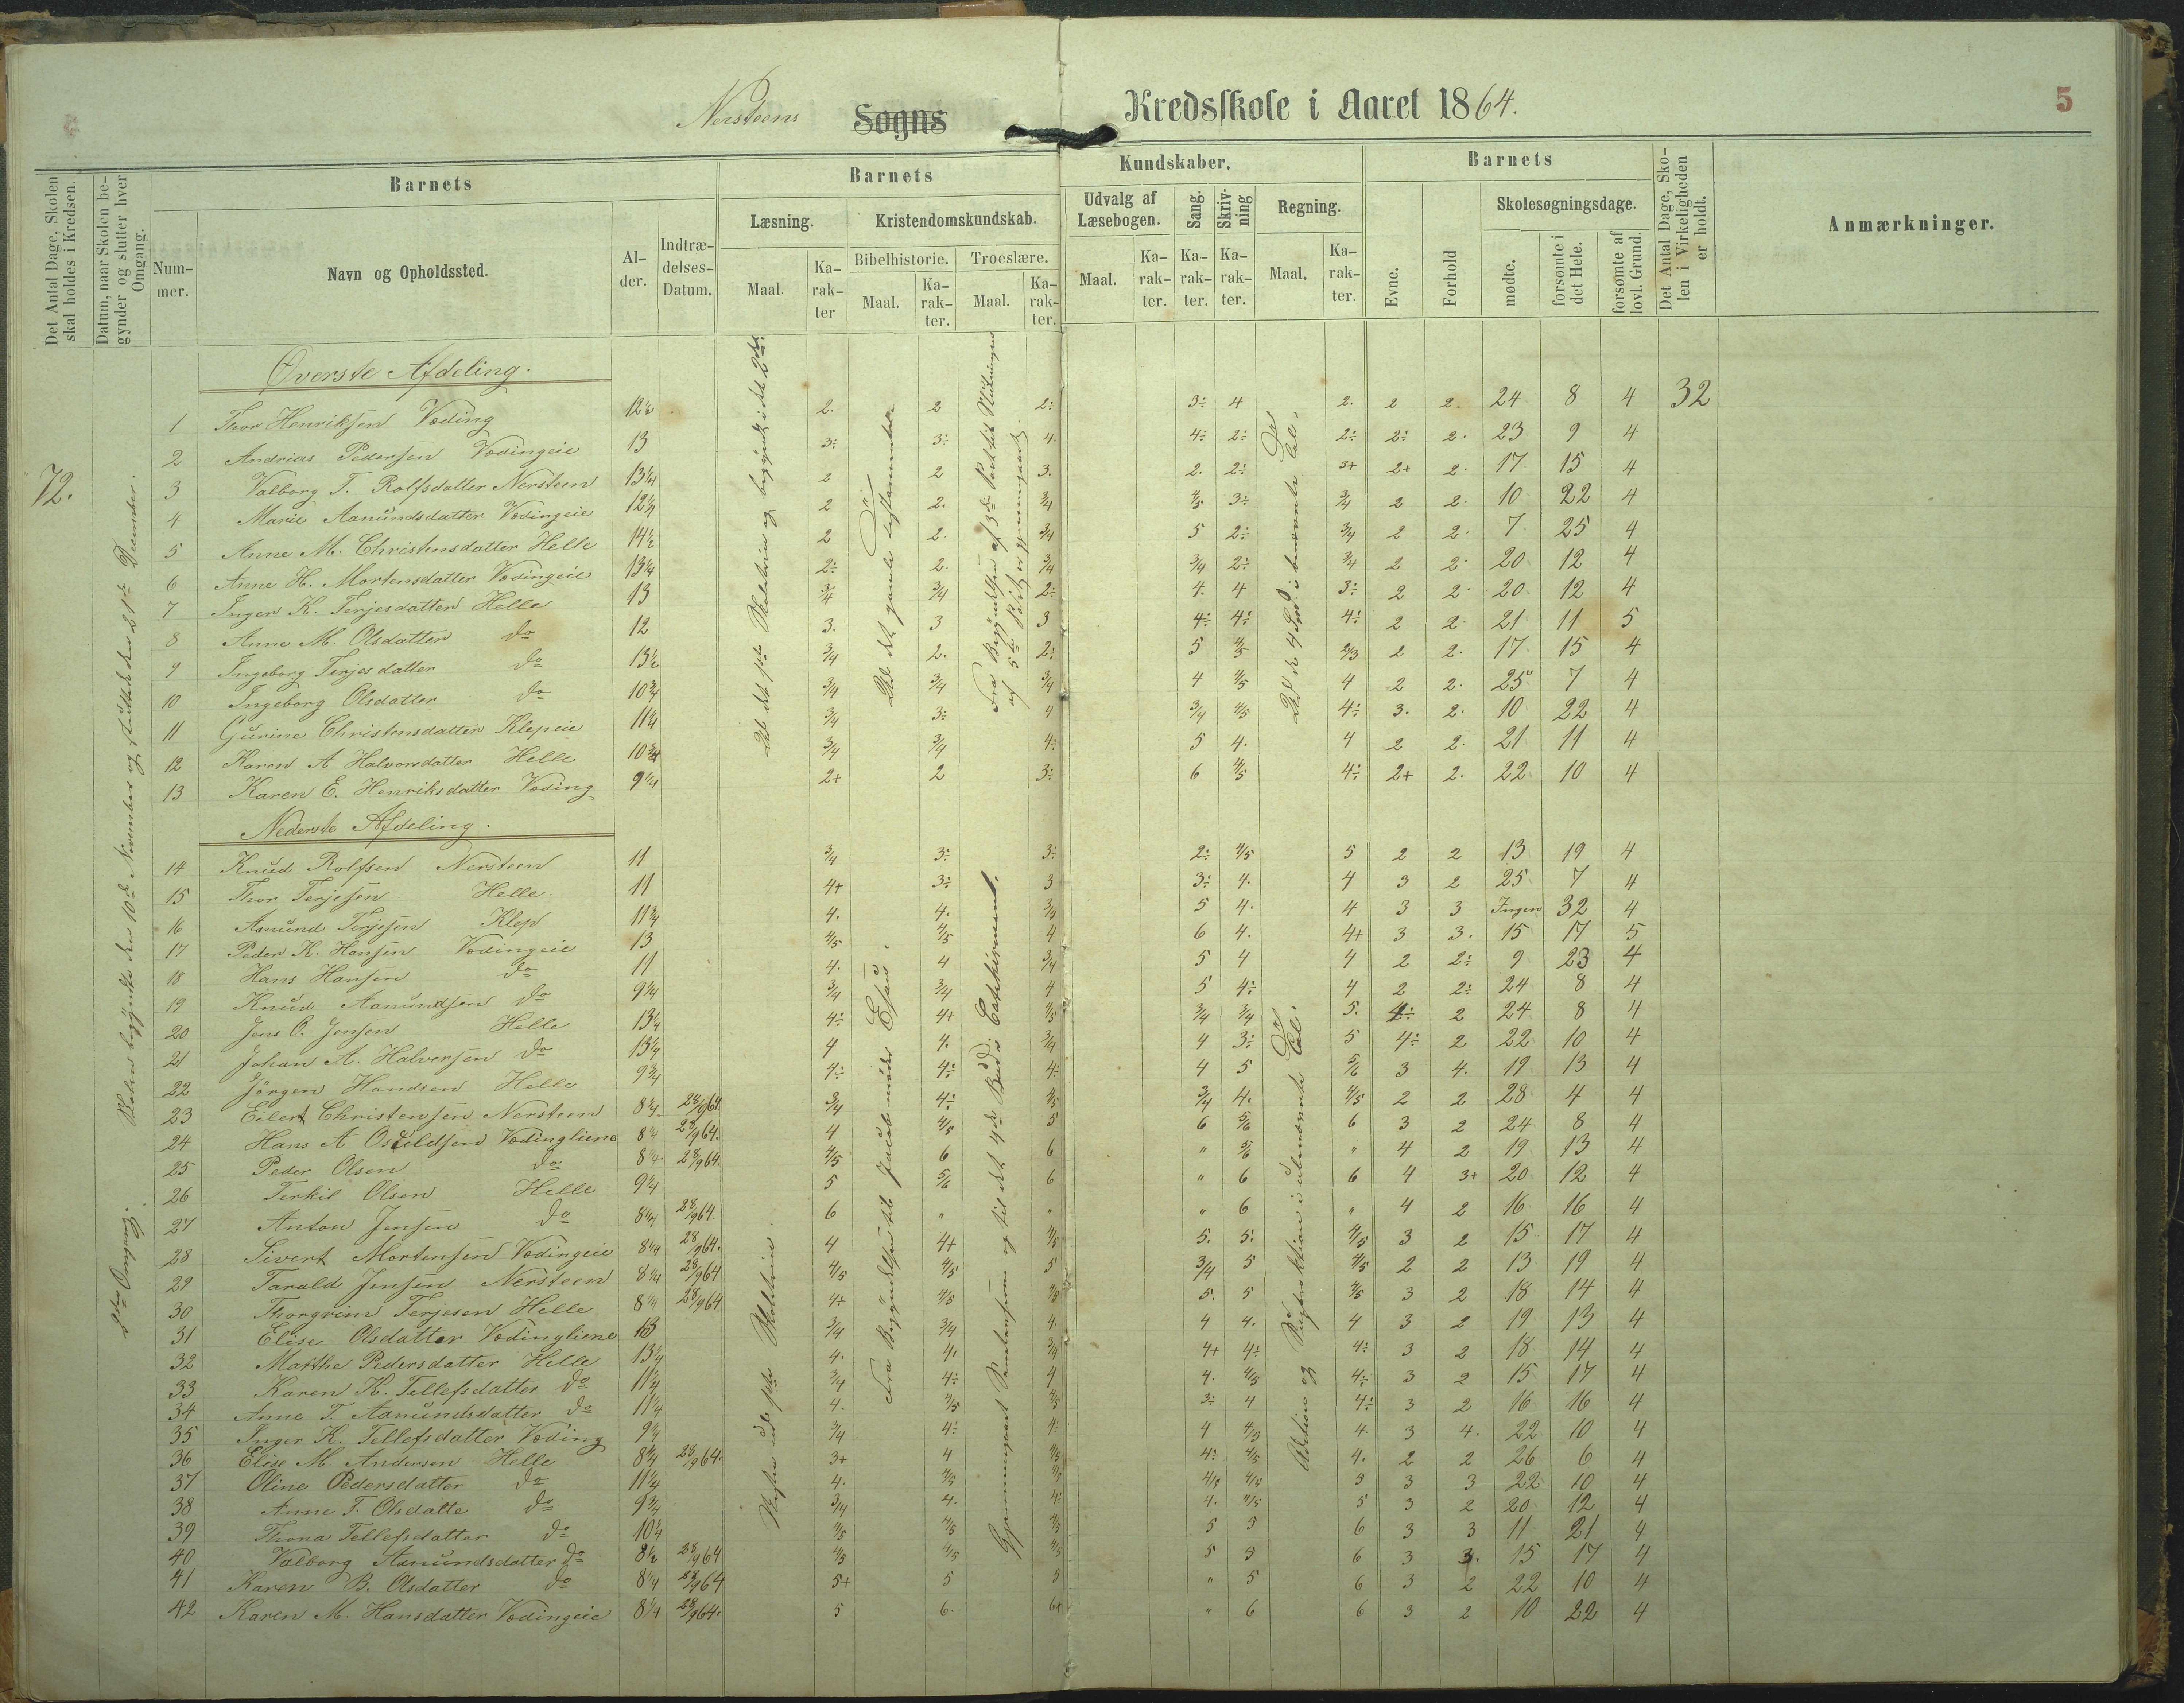 Nersteens Sogns Kredsskole i Aaret 1864. 5
Det Antal Dage, Skolen skal holdes i Kredsen.
Datum, naar Skolen begynder og slutter hver Omgang.
Barnets
Nummer.
Navn og Opholdssted.
Alder.
Indtrædelses-Datum.
Barnets Kundskaber.
Læsning.
Maal.
Karakter
Kristendomskundskab.
Bibelhistorie.
Maal.
Karakter.
Troeslære.
Maal.
Karakter.
Udvalg af Læsebogen.
Maal.
Karakter.
Sang.
Karakter.
Skrivning
Karakter.
Regning.
Maal.
Karakter.
Barnets
Evne.
Forhold
Skolesøgningsdage.
mødte.
forsømte i det Hele.
forsømte af lovl. Grund.
Det Antal Dage, Skolen i Virkeligheden er holdt.
Anmærkninger.
72.
Skolen begyndte den 10de November og sluttede den 21de December.
Omgang.
Øverste Afdeling.
1 Thor Henriksen Væding 12½ 2. 2 2÷ 3÷ 4 2. 2 2. 24 8 4 32
2 Andrias Pedersen Vædingeie 13 3÷ 3÷ 4. 4÷ 2÷ 2÷ 2÷ 2. 23 9 4
3 Valborg T. Rolfsdatter Nersteen 13¼ 2 2 3. 2. 2÷ 3+ 2+ 2. 17 15 4
4 Marie Aanundsdatter Vædingeie 12¼ 2 2. 3/4 4/5 3÷ 3/4 2 2. 10 22 4
5 Anne M. Christensdatter Helle 14½ 2 2. 3/4 5 2÷ 3/4 2 2. 7 25 4
6 Anne H. Mortensdatter Vædingeie 13¼ 2÷ 2. 3/4 3/4 2÷ 3/4 2 2. 20 12 4
7 Inger K. Terjesdatter Helle 13 3/4 3/4 2÷ 4. 4 3÷ 2 2. 20 12 4
8 Anne M. Olsdatter do 12 3. 3 3 4÷ 4÷ 4÷ 2 2. 21 11 5
9 Ingeborg Terjesdatter do 13½ 3/4 2. 2÷ 5 4/5 2/3 2 2. 17 15 4
10 Ingeborg Olsdatter do 10¾ 3/4 3/4 3/4 4 4/5 4 2 2. 25 7 4
11 Gurine Christensdatter Klepeie 11¼ 3/4 3÷ 4 3/4 4/5 4÷ 3. 2. 10 22 4
12 Karen A Halvorsdatter Helle 10¾ 3/4 3/4 4÷ 5 4. 4 2 2. 21 11 4
13 Karen E. Henriksdatter Væding 9¼ 2+ 2 3÷ 6 4/5 4÷ 2+ 2. 22 10 4
Nederste Afdeling.
14 Knud Rolfsen Nersteen 11 3/4 3÷ 3÷ 2÷ 4/5 5 2 2 13 19 4
15 Thor Terjesen Helle. 11 4+ 3÷ 3 3÷ 4. 4 3 2 25 7 4
16 Asmund Terjesen Klep 11¾ 4. 4. 3/4 5 4. 4 3 3 Ingen 32 4
17 Peder K. Hansen Vædingeie 13 4/5 4/5 4 6 4. 4+ 3 3. 15 17 5
18 Hans Hansen do 11 4. 4 3/4 5 4 4 2 2÷ 9 23 4
19 Knud Aanundsen do 9¼ 3/4 3/4 4 5 4÷ 4 2 2÷ 24 8 4
20 Jens O. Jensen Helle 13¼ 4÷ 4+ 4/5 3/4 3/4 5. 4÷ 2 24 8 4
21 Johan A. Halversen do 13¼ 4 4. 3/4 4 3÷ 5 4÷ 2 22 10 4
22 Jörgen Handsen Helle 9¾ 4÷ 4÷ 4÷ 4 5 5/6 3 4. 19 13 4
23 Eilert Christensen Nersteen 8¼ 28/9 64. 3/4 4÷ 4/5 3/4 4. 4/5 2 2 28 4 4
24 Hans A Osuldsen Vædingliene 8¼ 28/9 64. 4 4/5 5 6 5/6 6 3 2 24 8 4
25 Peder Olsen do 8¼ 28/9 64. 4/5 6 6 " 5/6 " 4 2 19 13 4
26 Terkil Olsen Helle 9¼ 5 5/6 6 " 6 6 4 3+ 20 12 4
27 Anton Jensen do 8¼ 28/9 64. 6 " " " 6 " 4 2 16 16 4
28 Sivert Mortensen Vædingeie 8¼ 28/9 64. 4 4+ 4/5 5. 5. 4/5 3 2 15 17 4
29 Tarald Jensen Nersteen 8¼ 28/9 64 4/5 4/5 5 3/4 5 4/5 2 2 13 19 4
30 Thorgrim Terjesen Helle 8¼ 28/9 64 4+ 4/5 4/5 5. 5 4/5 3 2 18 14 4
31 Elise Olsdatter Vædingliene 13 3/4 3/4 4. 4 4. 4 3 2 19 13 4
32 Matthe Pedersdatter Helle 13¼ 4. 4. 3/4 4+ 4÷ 4÷ 3 2 18 14 4
33 Karen K. Tellefsdatter do 11¼ 3/4 4÷ 4 4. 4/5 4÷ 3 2 15 17 4
34 Anne T. Aanundsdatter do 11¼ 4. 4/5 4/5 3÷ 4 4÷ 3 2 16 16 4
35 Inger K. Tellefsdatter Væding 9¼ 3/4 4÷ 4÷ 4 4/5 4. 3 4. 22 10 4
36 Elise M. Andersen Helle 8¾ 28/9 64. 3+ 4 4/5 4÷ 4/5 4. 2 2 26 6 4
37 Oline Pedersdatter do 11¼ 4. 4/5 4/5 4/5 4/5 5 3 3 22 10 4
38 Anne T. Olsdatte do 9¾ 3/4 4. 4÷ 4. 4/5 5 3 2 20 12 4
39 Thona Tellefsdatter do 10¼ 4/5 4/5 4/5 5 5 6 3 3 11 21 4
40 Valborg Aanundsdatter do 8½ 28/9 64 4/5 4/5 4/5 5 5 6 3 3. 15 17 4
41 Karen B. Olsdatter do 8¼ 28/9 64 5+ 5 5 " 5 6 3 2 22 10 4
42 Karen M. Hansdatter Vædingeie 8¼ 28/9 64. 5 6. 6+ " 6 6 3 2 10 22 4